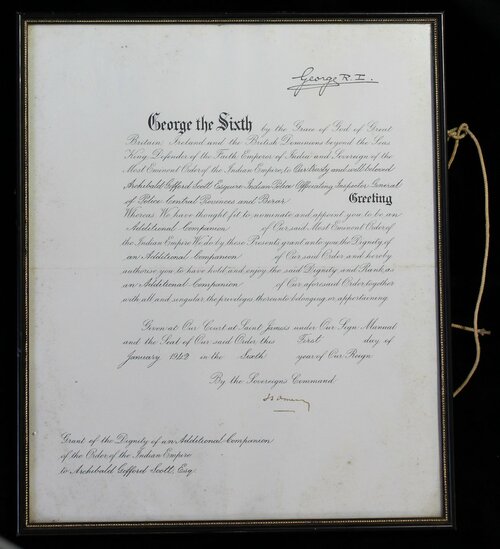 George R. I.
George the Sixth by the Grace of God of Great
Britain Ireland and the British Dominions beyond the Seas
King, Defender of the Faith Emperor of India and Sovereign of the
Most Eminent Order of the Indian Empire, to Our trusty and well beloved
Archibald Gifford Scott Esquire Indian Police Officiating Inspector General
of Police Central Provinces and Berar Greeting
Whereas We have thought fit to nominate and appoint you to be an
Additional Companion of Our said Most Eminent Order of
the Indian Empire We do by these Presents grant unto you the Dignity of
an Additional Companion of Our said Order and hereby
authorise you to have hold and enjoy the said Dignity and Rank as
an Additional Companion of Our aforesaid Order together
with all and singular the privileges thereunto belonging or appertaining.
Given at Our Court at Saint James's under Our Sign Manual
and the Seal of Our said Order this First day of
January 1942 in the Sixth year of Our Reign
By the Sovereign's Command
Grant of the Dignity of an Additional Companion
of the Order of the Indian Empire
to Archibald Gifford Scott, Esq.